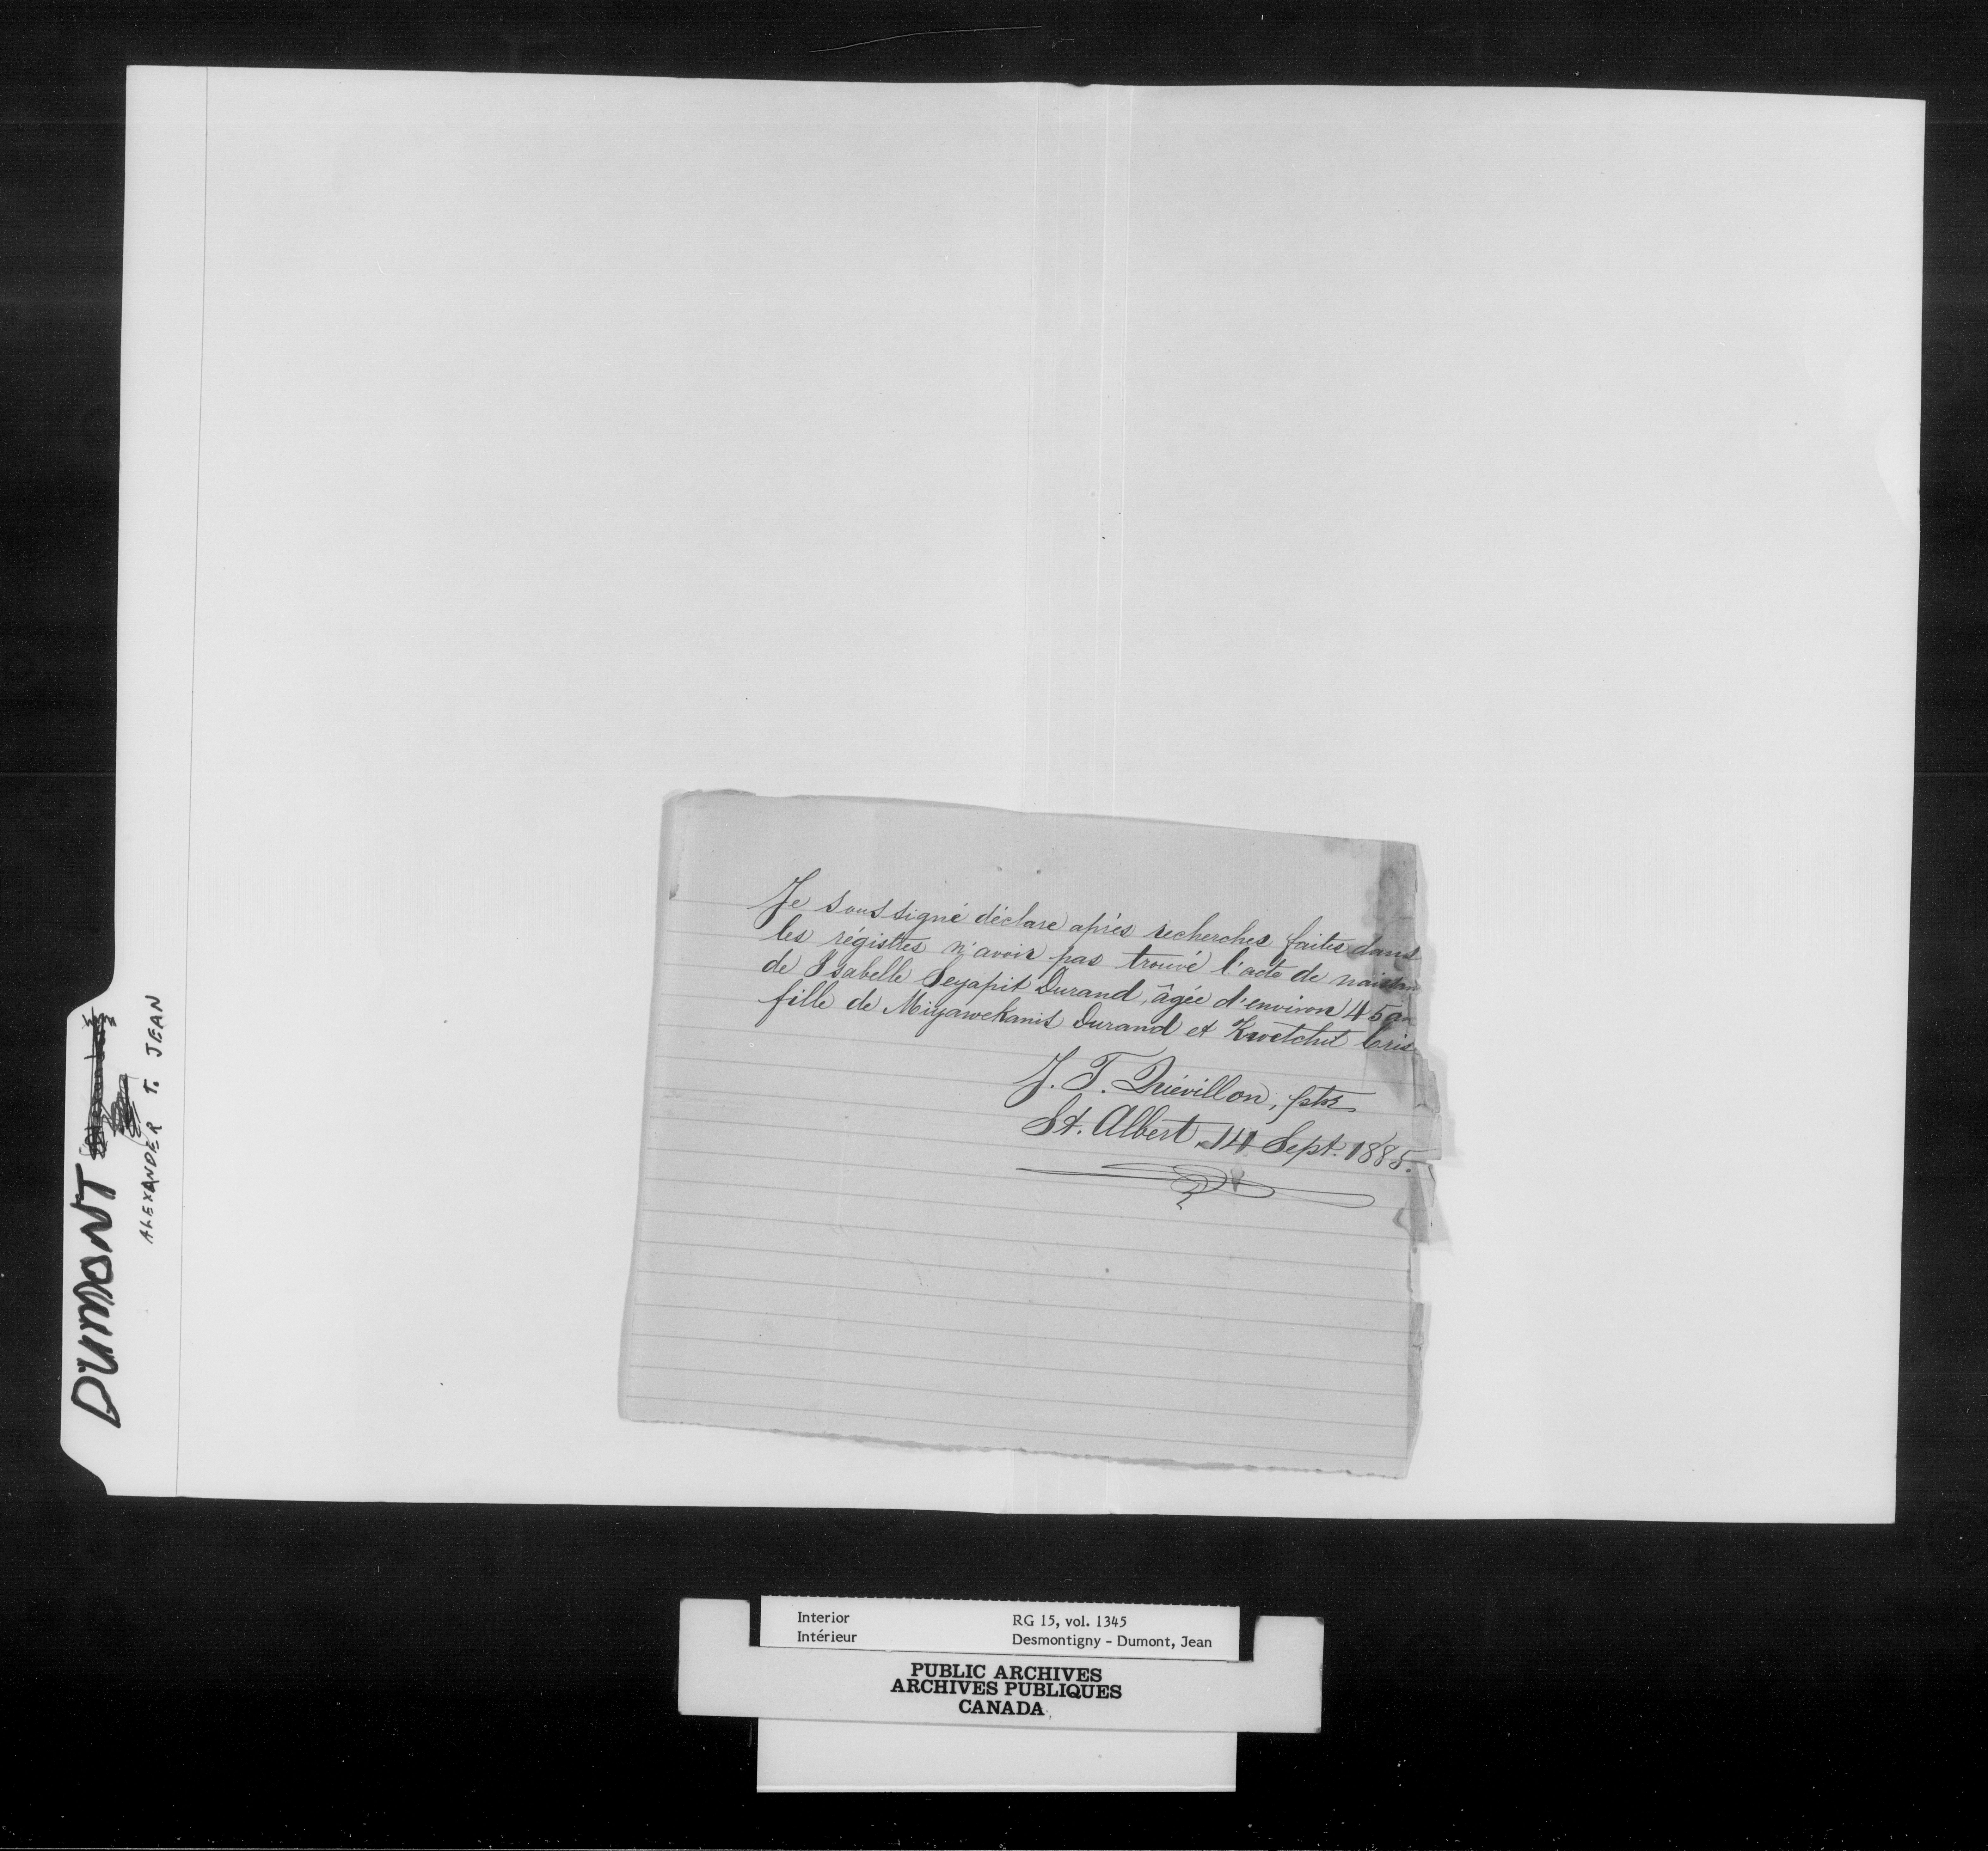 Je soussigné déclare après recherches faites dans
les régistres n'avoir pas trouvé l'acte de naissan
de Isabelle Seyapit Durand, âgée d'environ 45 an
fille de Miyawekanis Durand et Kwetchit Cris
J. T. Quévillon, ptre
St. Albert 14 Sept. 1885.
DUMONT
ALEXANDER T. JEAN
Interior RG 15, vol. 1345
Intérieur Desmontigny - Dumont, Jean
PUBLIC ARCHIVES
ARCHIVES PUBLIQUES
CANADA